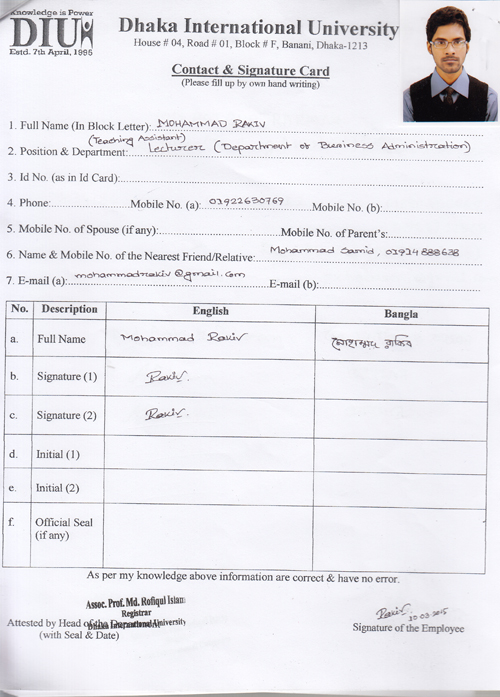 Knowledge is Power
DIU
Estd. 7th April, 1995
Dhaka International University
House # 04, Road # 01, Block # F, Banani, Dhaka-1213
Contact & Signature Card
(Please fill up by own hand writing)
1. Full Name (In Block Letter): MOHAMMAD RAKIV
(Teaching Assistant)
2. Position & Department: Lecturer (Department of Business Administration)
3. Id No. (as in Id Card):
4. Phone: Mobile No. (a): 01922630769 Mobile No. (b):
5. Mobile No. of Spouse (if any): Mobile No. of Parent's:
6. Name & Mobile No. of the Nearest Friend/Relative: Mohammad Samid, 01914888638
7. E-mail (a): mohammadrakiv@gmail.com E-mail (b):
No. Description English Bangla
a. Full Name Mohammad Rakiv মোহাম্মদ রাকিব
b. Signature (1) Rakiv.
c. Signature (2) Rakiv.
d. Initial (1)
e. Initial (2)
f. Official Seal
(if any)
As per my knowledge above information are correct & have no error.
Assoc. Prof. Md. Rofiqul Islam
Registrar
Dhaka International University
Attested by Head of the Department
(with Seal & Date)
Rakiv. 30-03-2015
Signature of the Employee